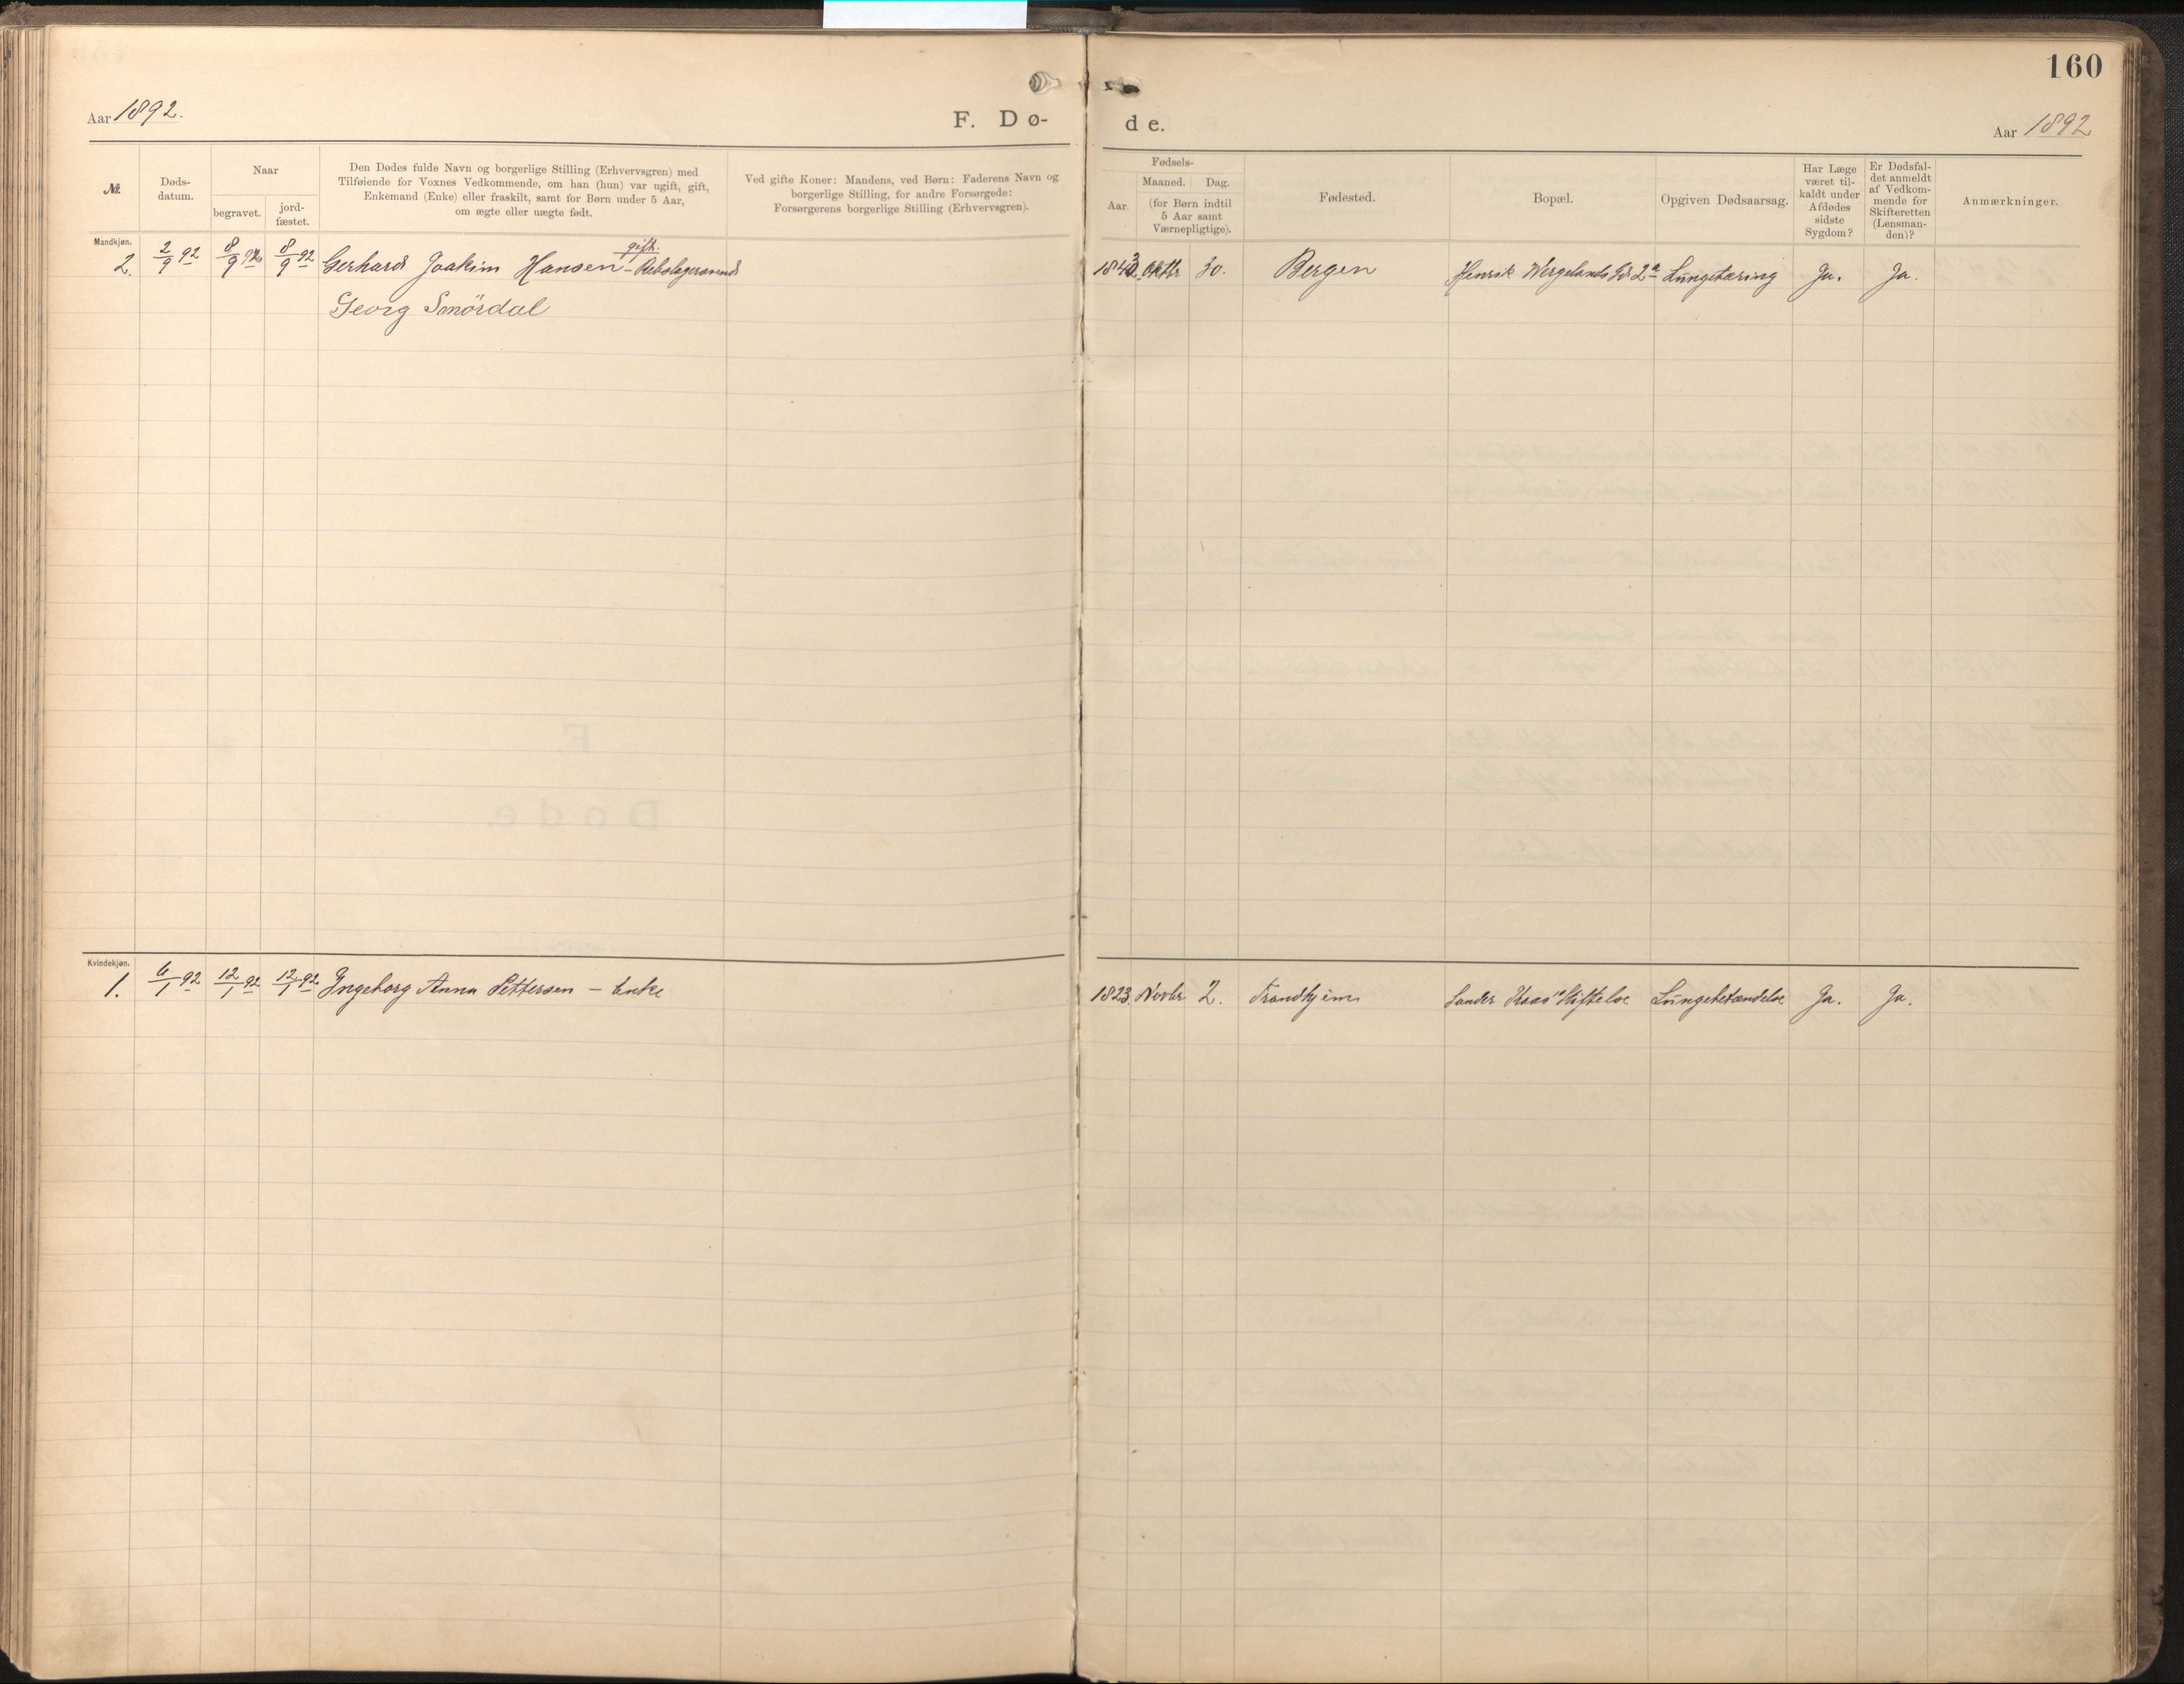 160
Aar 1892.
F. Dø-
de.
Aar 1892
№
Døds-
datum.
Naar
begravet.
jord-
fæstet.
Den Dødes fulde Navn og borgerlige Stilling (Erhvervsgren) med
Tilføiende for Voxnes Vedkommende, om han (hun) var ugift, gift,
Enkemand (Enke) eller fraskilt, samt for Børn under 5 Aar,
om ægte eller uægte født.
Ved gifte Koner: Mandens, ved Børn: Faderens Navn og
borgerlige Stilling, for andre Forsørgede:
Forsørgerens borgerlige Stilling (Erhvervsgren).
Fødsels-
Aar.
Maaned. Dag.
(for Børn indtil
5 Aar samt
Værnepligtige).
Fødested.
Bopæl.
Opgiven Dødsaarsag.
Har Læge
været til-
kaldt under
Afdødes
sidste
Sygdom?
Er Dødsfal-
det anmeldt
af Vedkom-
mende for
Skifteretten
(Lensman-
den)?
Anmærkninger.
Mandkjøn.
gift.
2. 2/9 92 8/9 92 8/9 92 Gerhard Joakim Hansen - Rebslagersvend 1843 Oktbr 30. Bergen Henrik Wergelands Gd 2a Lungetæring Ja. Ja.
Georg Smördal
Kvindekjøn.
1. 6/1 92 12/1 92 12/1 92 Ingeborg Anna Pettersen - Enke 1823 Novbr 2. Trondhjem Sander Kaas' Stiftelse Lungebetændelse Ja. Ja.